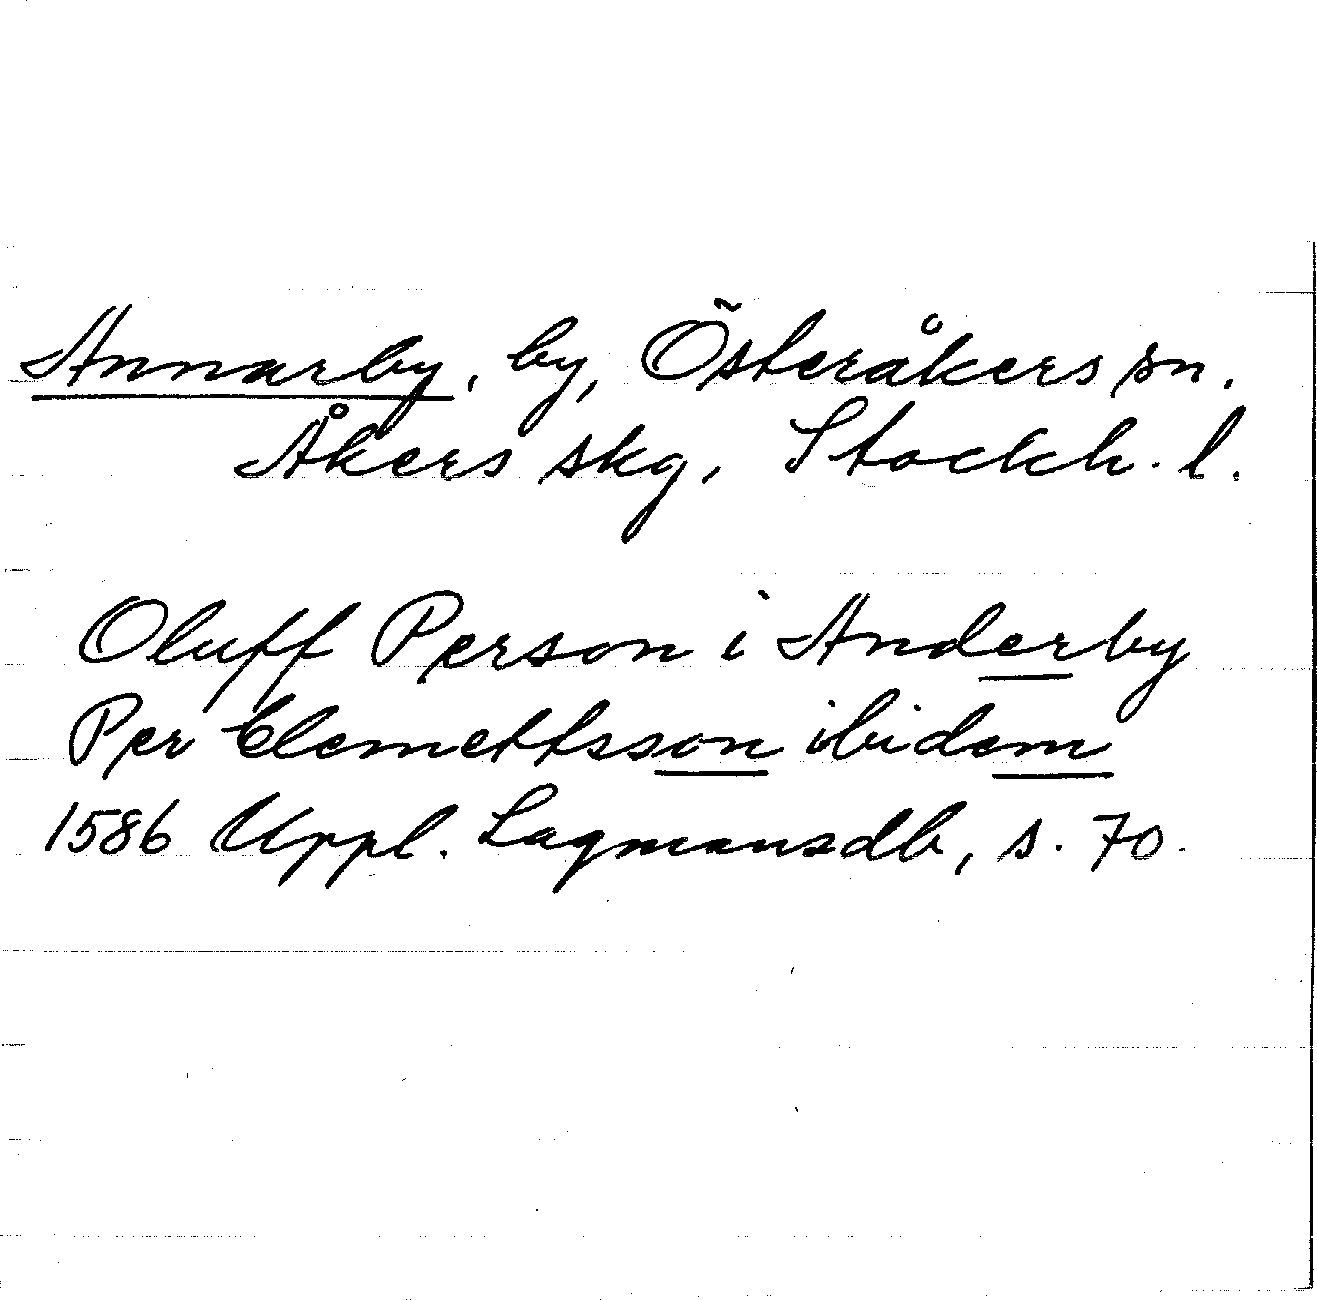 Annarby, by, Österåkers sn.
Åkers skg, Stockh. l.
Oluff Person i Anderby
Per Clemettsson ibidem
1586 Uppl. Lagmansdb, s. 70.